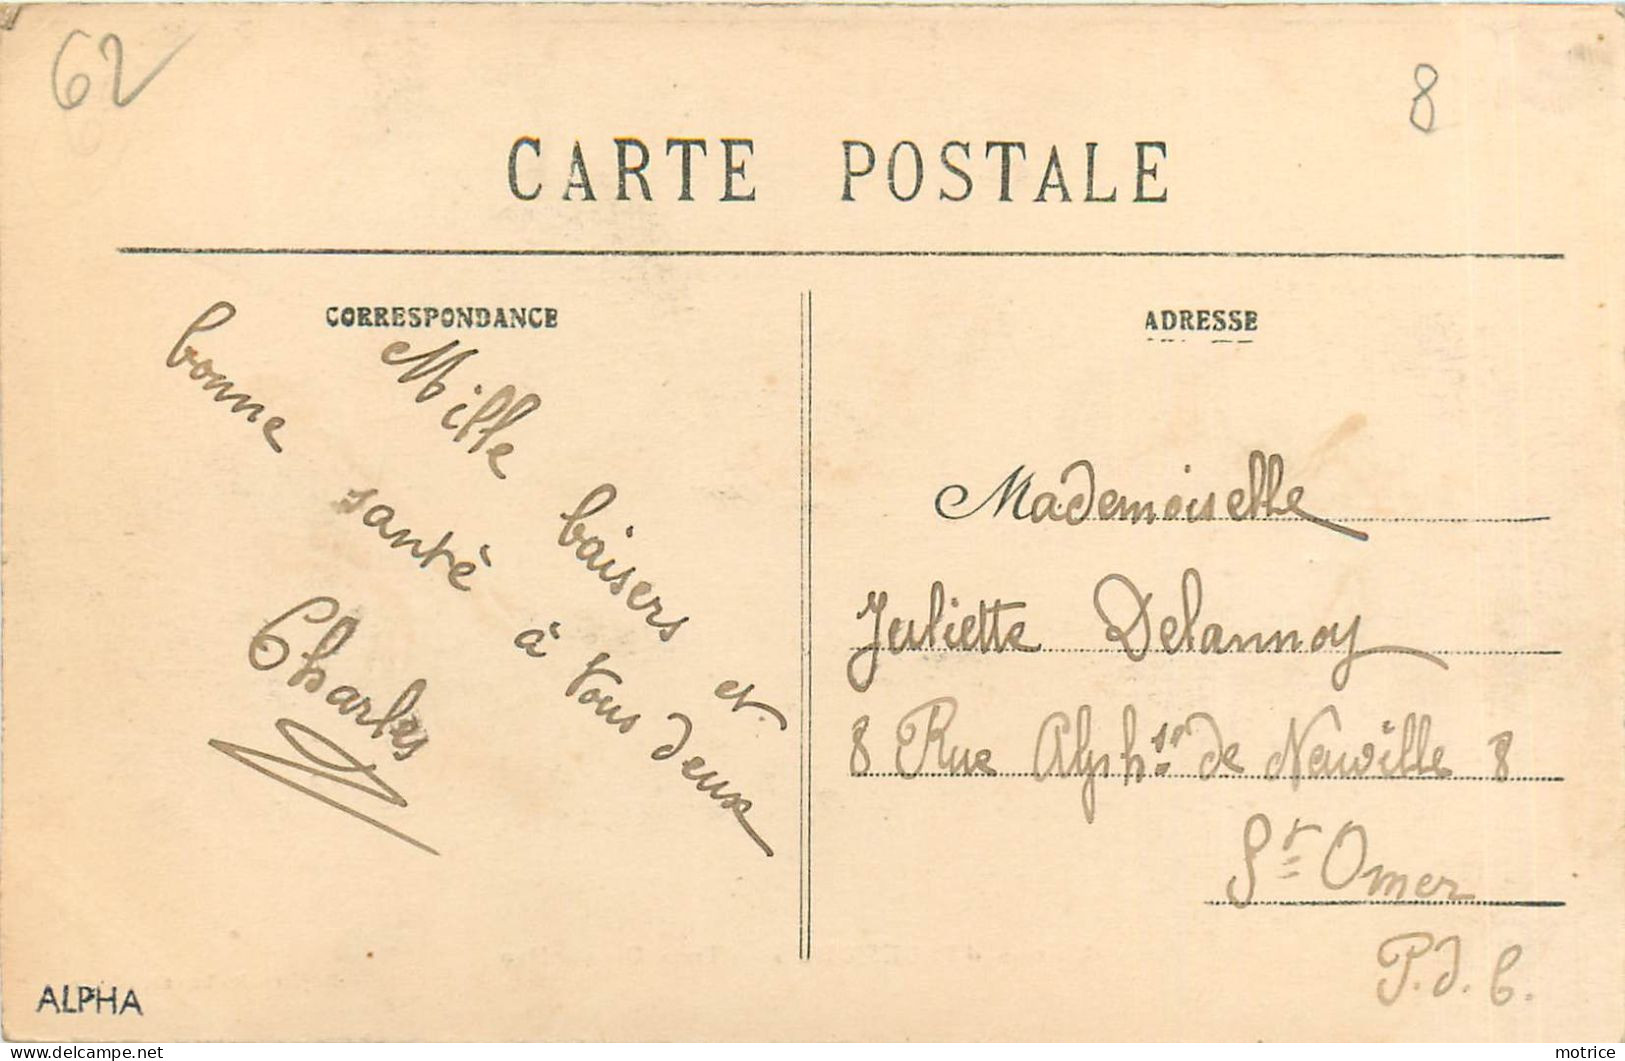 62
8
CARTE POSTALE
CORRESPONDANCE
Mille baisers et
bonne santé à vous deux
Charles
ADRESSE
Mademoiselle
Juliette Delannoy
8 Rue Alph.se de Neuville 8
St Omer
P.d.C.
ALPHA
motrice